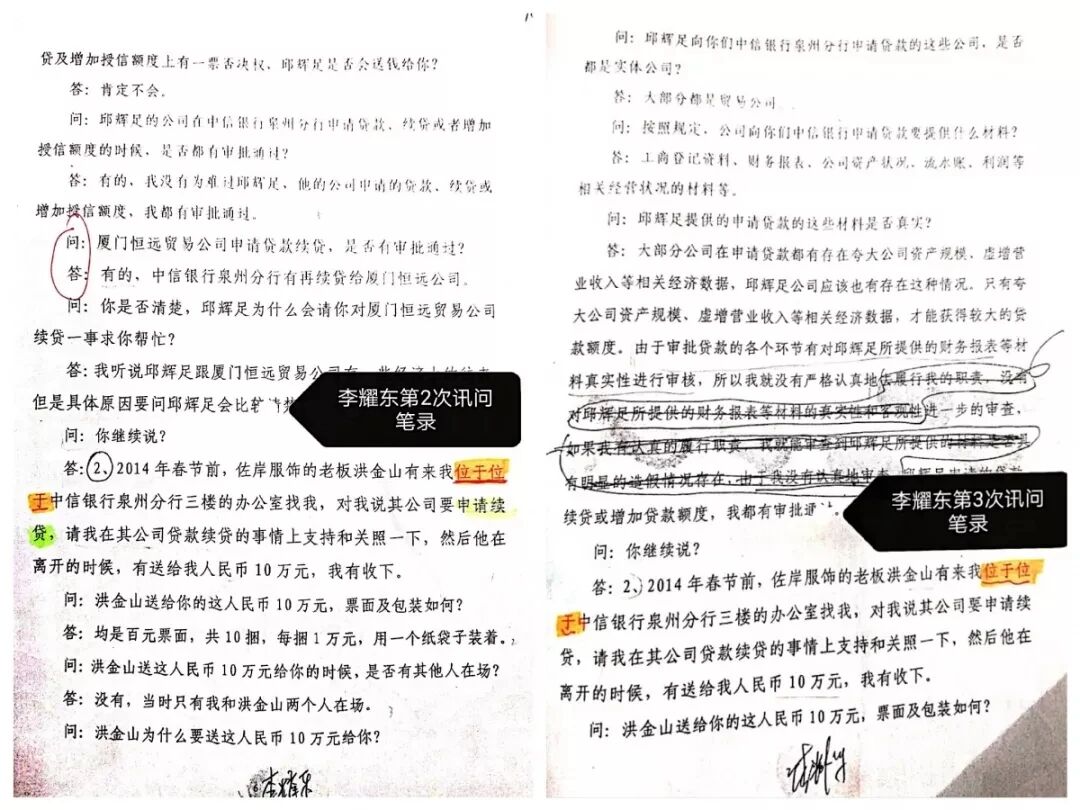 贷及增加授信额度上有一票否决权，邱辉足是否会送钱给你？
答：肯定不会。
问：邱辉足的公司在中信银行泉州分行申请贷款、续贷或者增加
授信额度的时候，是否都有审批通过？
答：有的，我没有为难过邱辉足，他的公司申请的贷款、续贷或
增加授信额度，我都有审批通过。
问：厦门恒远贸易公司申请贷款续贷，是否有审批通过？
答：有的，中信银行泉州分行有再续贷给厦门恒远公司。
问：你是否清楚，邱辉足为什么会请你对厦门恒远贸易公司
续贷一事求你帮忙？
答：我听说邱辉足跟厦门恒远贸易公司有一些经济上的往来
但是具体原因要问邱辉足会比较清楚
李耀东第2次讯问
笔录
问：你继续说？
答：2、2014年春节前，佐岸服饰的老板洪金山有来我位于位
于中信银行泉州分行三楼的办公室找我，对我说其公司要申请续
贷，请我在其公司贷款续贷的事情上支持和关照一下，然后他在
离开的时候，有送给我人民币10万元，我有收下。
问：洪金山送给你的这人民币10万元，票面及包装如何？
答：均是百元票面，共10捆，每捆1万元，用一个纸袋子装着。
问：洪金山送这人民币10万元给你的时候，是否有其他人在场？
答：没有，当时只有我和洪金山两个人在场。
问：洪金山为什么要送这人民币10万元给你？
李耀东
问：邱辉足向你们中信银行泉州分行申请贷款的这些公司，是否
都是实体公司？
答：大部分都是贸易公司。
问：按照规定，公司向你们中信银行申请贷款要提供什么材料？
答：工商登记资料、财务报表、公司资产状况、流水账、利润等
相关经营状况的材料等。
问：邱辉足提供的申请贷款的这些材料是否真实？
答：大部分公司在申请贷款都有存在夸大公司资产规模、虚增营
业收入等相关经济数据，邱辉足公司应该也有存在这种情况。只有夸
大公司资产规模、虚增营业收入等相关经济数据，才能获得较大的贷
款额度。由于审批贷款的各个环节有对邱辉足所提供的财务报表等材
料真实性进行审核，所以我就没有严格认真地去履行我的职责，没有
对邱辉足所提供的财务报表等材料的真实性和客观性进一步的审查，
如果我有认真的履行职责，我就能审查到邱辉足所提供的材料是否具
有明显的造假情况存在，由于我没有认真地审查，邱辉足申请的贷款
续贷或增加贷款额度，我都有审批通
李耀东第3次讯问
笔录
问：你继续说？
答：2、2014年春节前，佐岸服饰的老板洪金山有来我位于位
于中信银行泉州分行三楼的办公室找我，对我说其公司要申请续
贷，请我在其公司贷款续贷的事情上支持和关照一下，然后他在
离开的时候，有送给我人民币10万元，我有收下。
问：洪金山送给你的这人民币10万元，票面及包装如何？